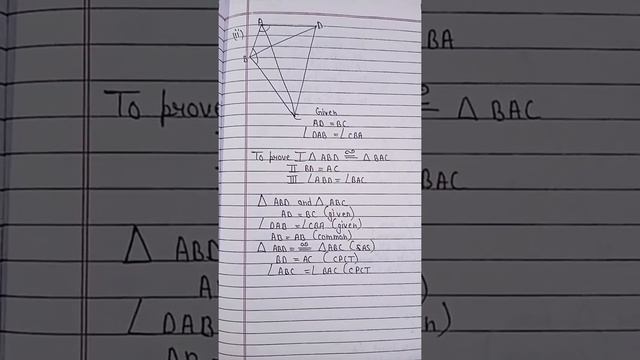 (ii)
A
D
B
C
Given
AD = BC
∠DAB = ∠CBA
To prove I △ ABD ≅ △ BAC
II BD = AC
III ∠ABD = ∠BAC
△ ABD and △ ABC
AD = BC (given)
∠DAB = ∠CBA (given)
AB = AB (common)
△ ABD ≅ △ABC (SAS)
BD = AC (CPCT)
∠ABC = ∠BAC (CPCT
To prove
△ ABD
∠DAB
CBA
≅ △ BAC
BAC
n)